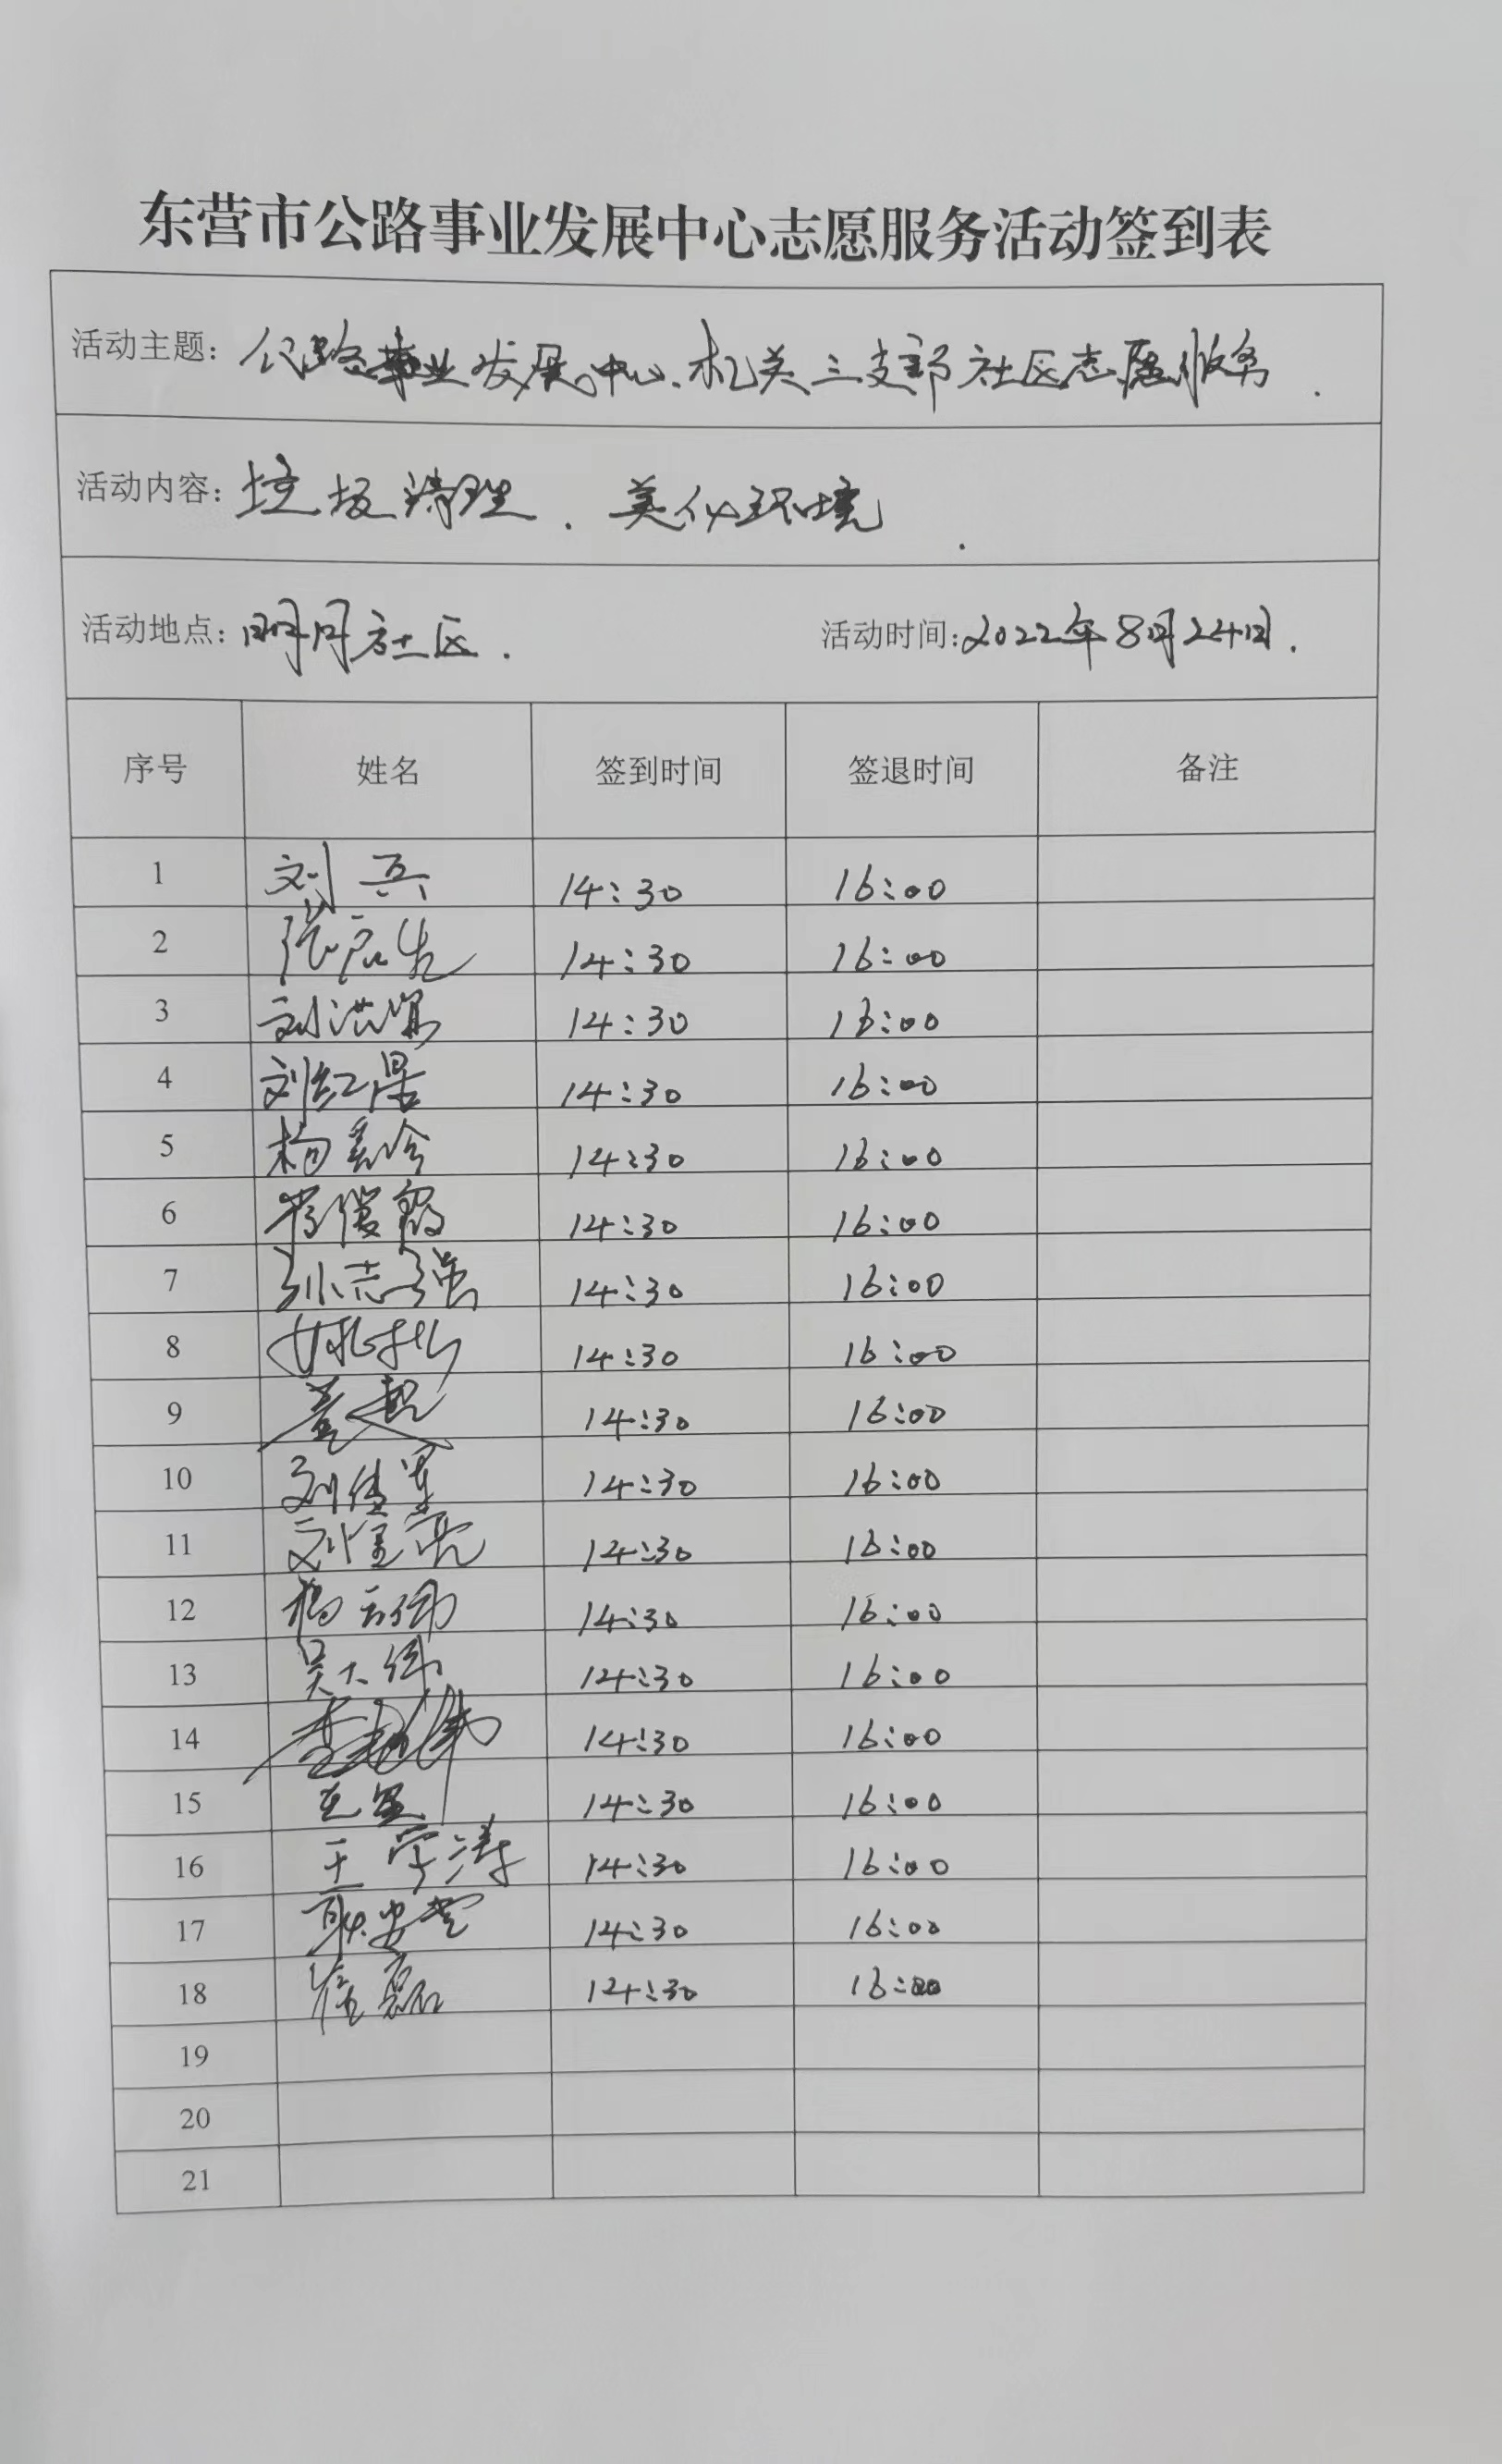 东营市公路事业发展中心志愿服务活动签到表
活动主题: 公路事业发展中心机关三支部社区志愿服务.
活动内容: 垃圾清理. 美化环境.
活动地点: 明月社区. 活动时间: 2022年8月24日.
序号 姓名 签到时间 签退时间 备注
1 刘兵 14:30 16:00
2 张 14:30 16:00
3 刘洪 14:30 16:00
4 刘红 14:30 16:00
5 杨 14:30 16:00
6 14:30 16:00
7 孙志强 14:30 16:00
8 14:30 16:00
9 14:30 16:00
10 刘 14:30 16:00
11 刘 亮 14:30 16:00
12 杨 伟 14:30 16:00
13 吴大伟 14:30 16:00
14 李 14:30 16:00
15 14:30 16:00
16 王学涛 14:30 16:00
17 耿安 14:30 16:00
18 崔磊 14:30 16:00
19
20
21